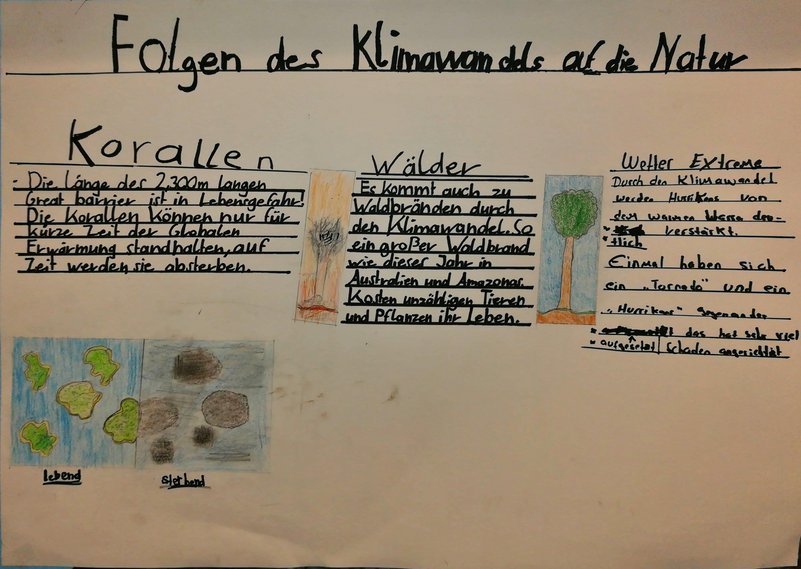 Folgen des Klimawandels auf die Natur
Korallen
- Die Länge des 2,300m langen
Great barrier ist in Lebensgefahr.
Die Korallen können nur für
kurze Zeit der Globalen
Erwärmung standhalten, auf
Zeit werden sie absterben.
lebend
sterbend
Wälder
Es kommt auch zu
Waldbränden durch
den Klimawandel. So
ein großer Waldbrand
wie dieser Jahr in
Australien und Amazonas.
Kosten unzähligen Tieren
und Pflanzen ihr Leben.
Wetter Extreme
Durch den Klimawandel
werden Hurrikans von
dem warmen
verstärkt.
Einmal haben sich
ein "Tornado" und ein
"Hurrikane"
das hat sehr viel
* aufgesetzt Schaden angerichtet